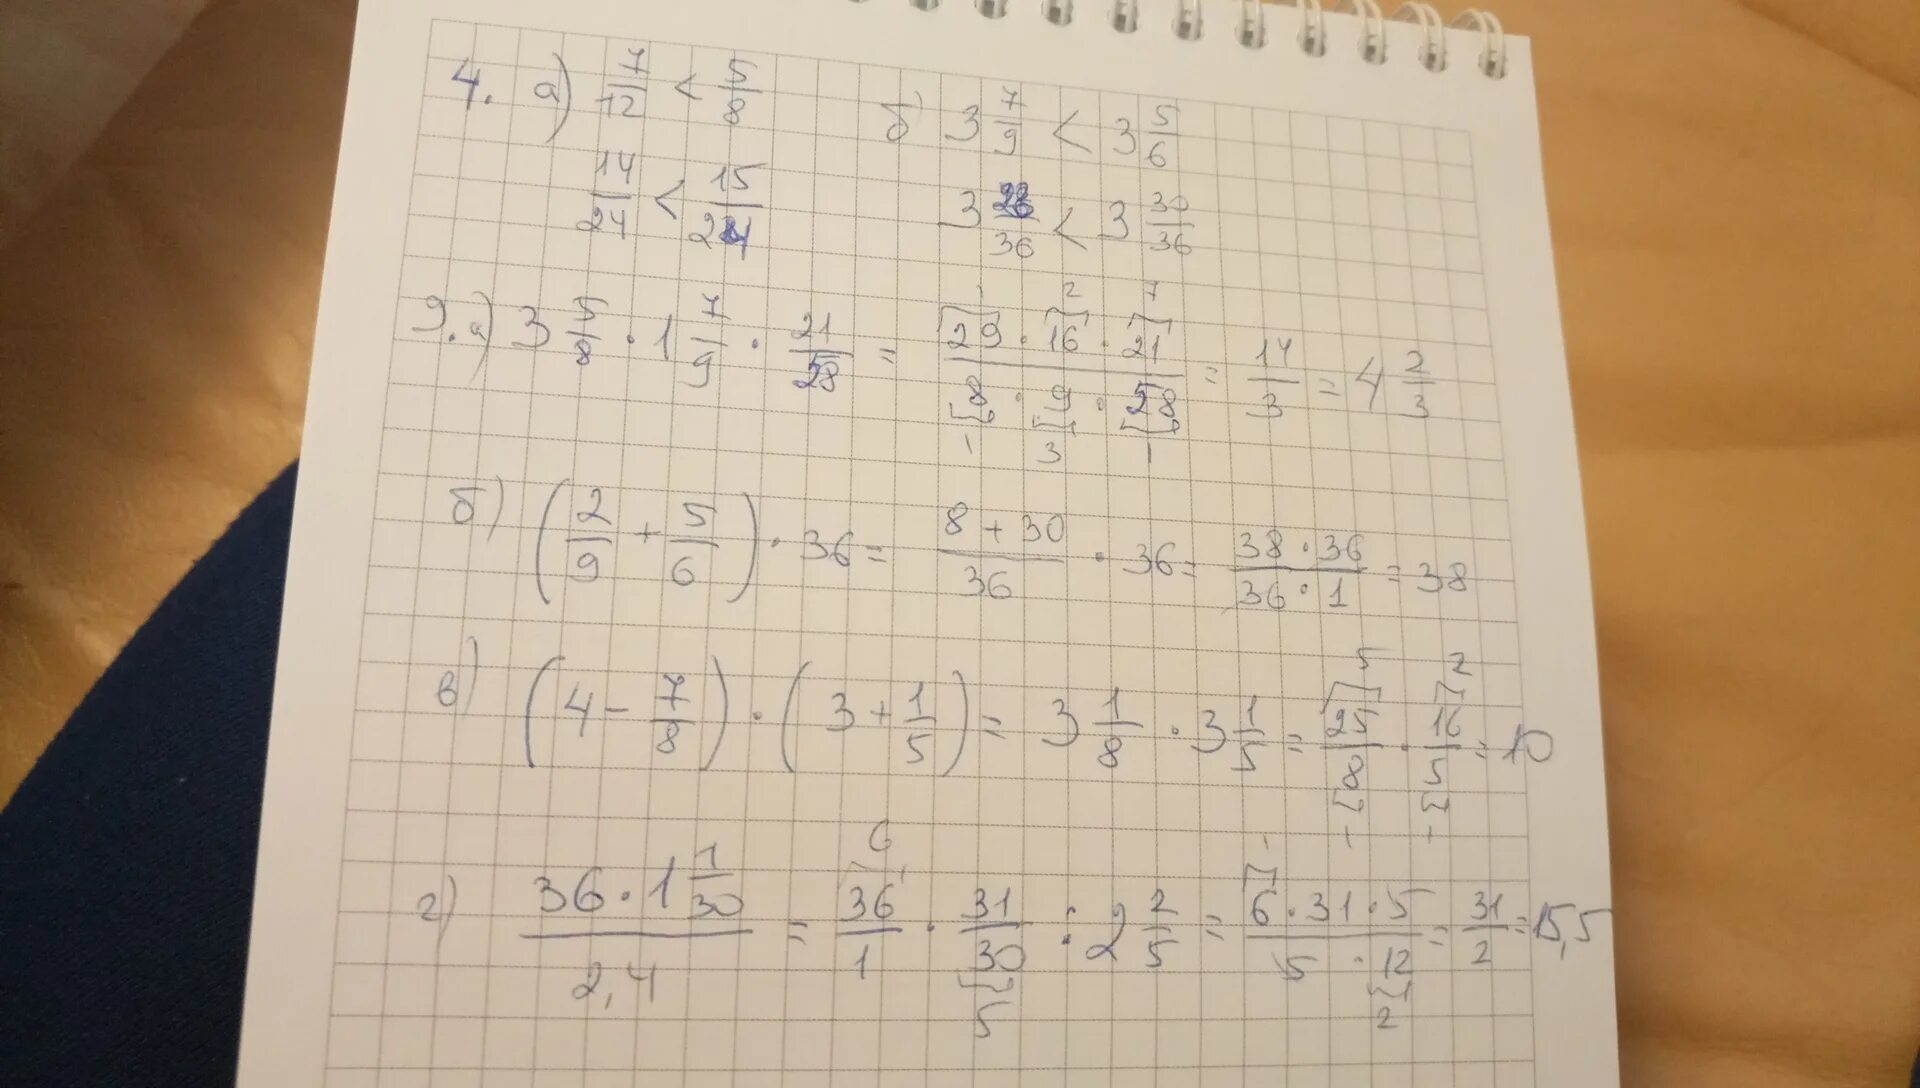 4. а) 7/12 < 5/8 б) 3 7/9 < 3 5/6
14/24 < 15/24 3 28/36 < 3 30/36
9. а) 3 5/8 · 1 7/9 · 21/58 = (29 · 16 · 21)/(8 · 9 · 58) = 14/3 = 4 2/3
1 2 7
1 3 1
б) (2/9 + 5/6) · 36 = (8 + 30)/36 · 36 = (38 · 36)/(36 · 1) = 38
в) (4 - 7/8) · (3 + 1/5) = 3 1/8 · 3 1/5 = 25/8 · 16/5 = 10
5 2
1 1
г) (36 · 1 1/30)/2,4 = 36/1 · 31/30 : 2 2/5 = (6 · 31 · 5)/(5 · 12) = 31/2 = 15,5
6 1
5 2